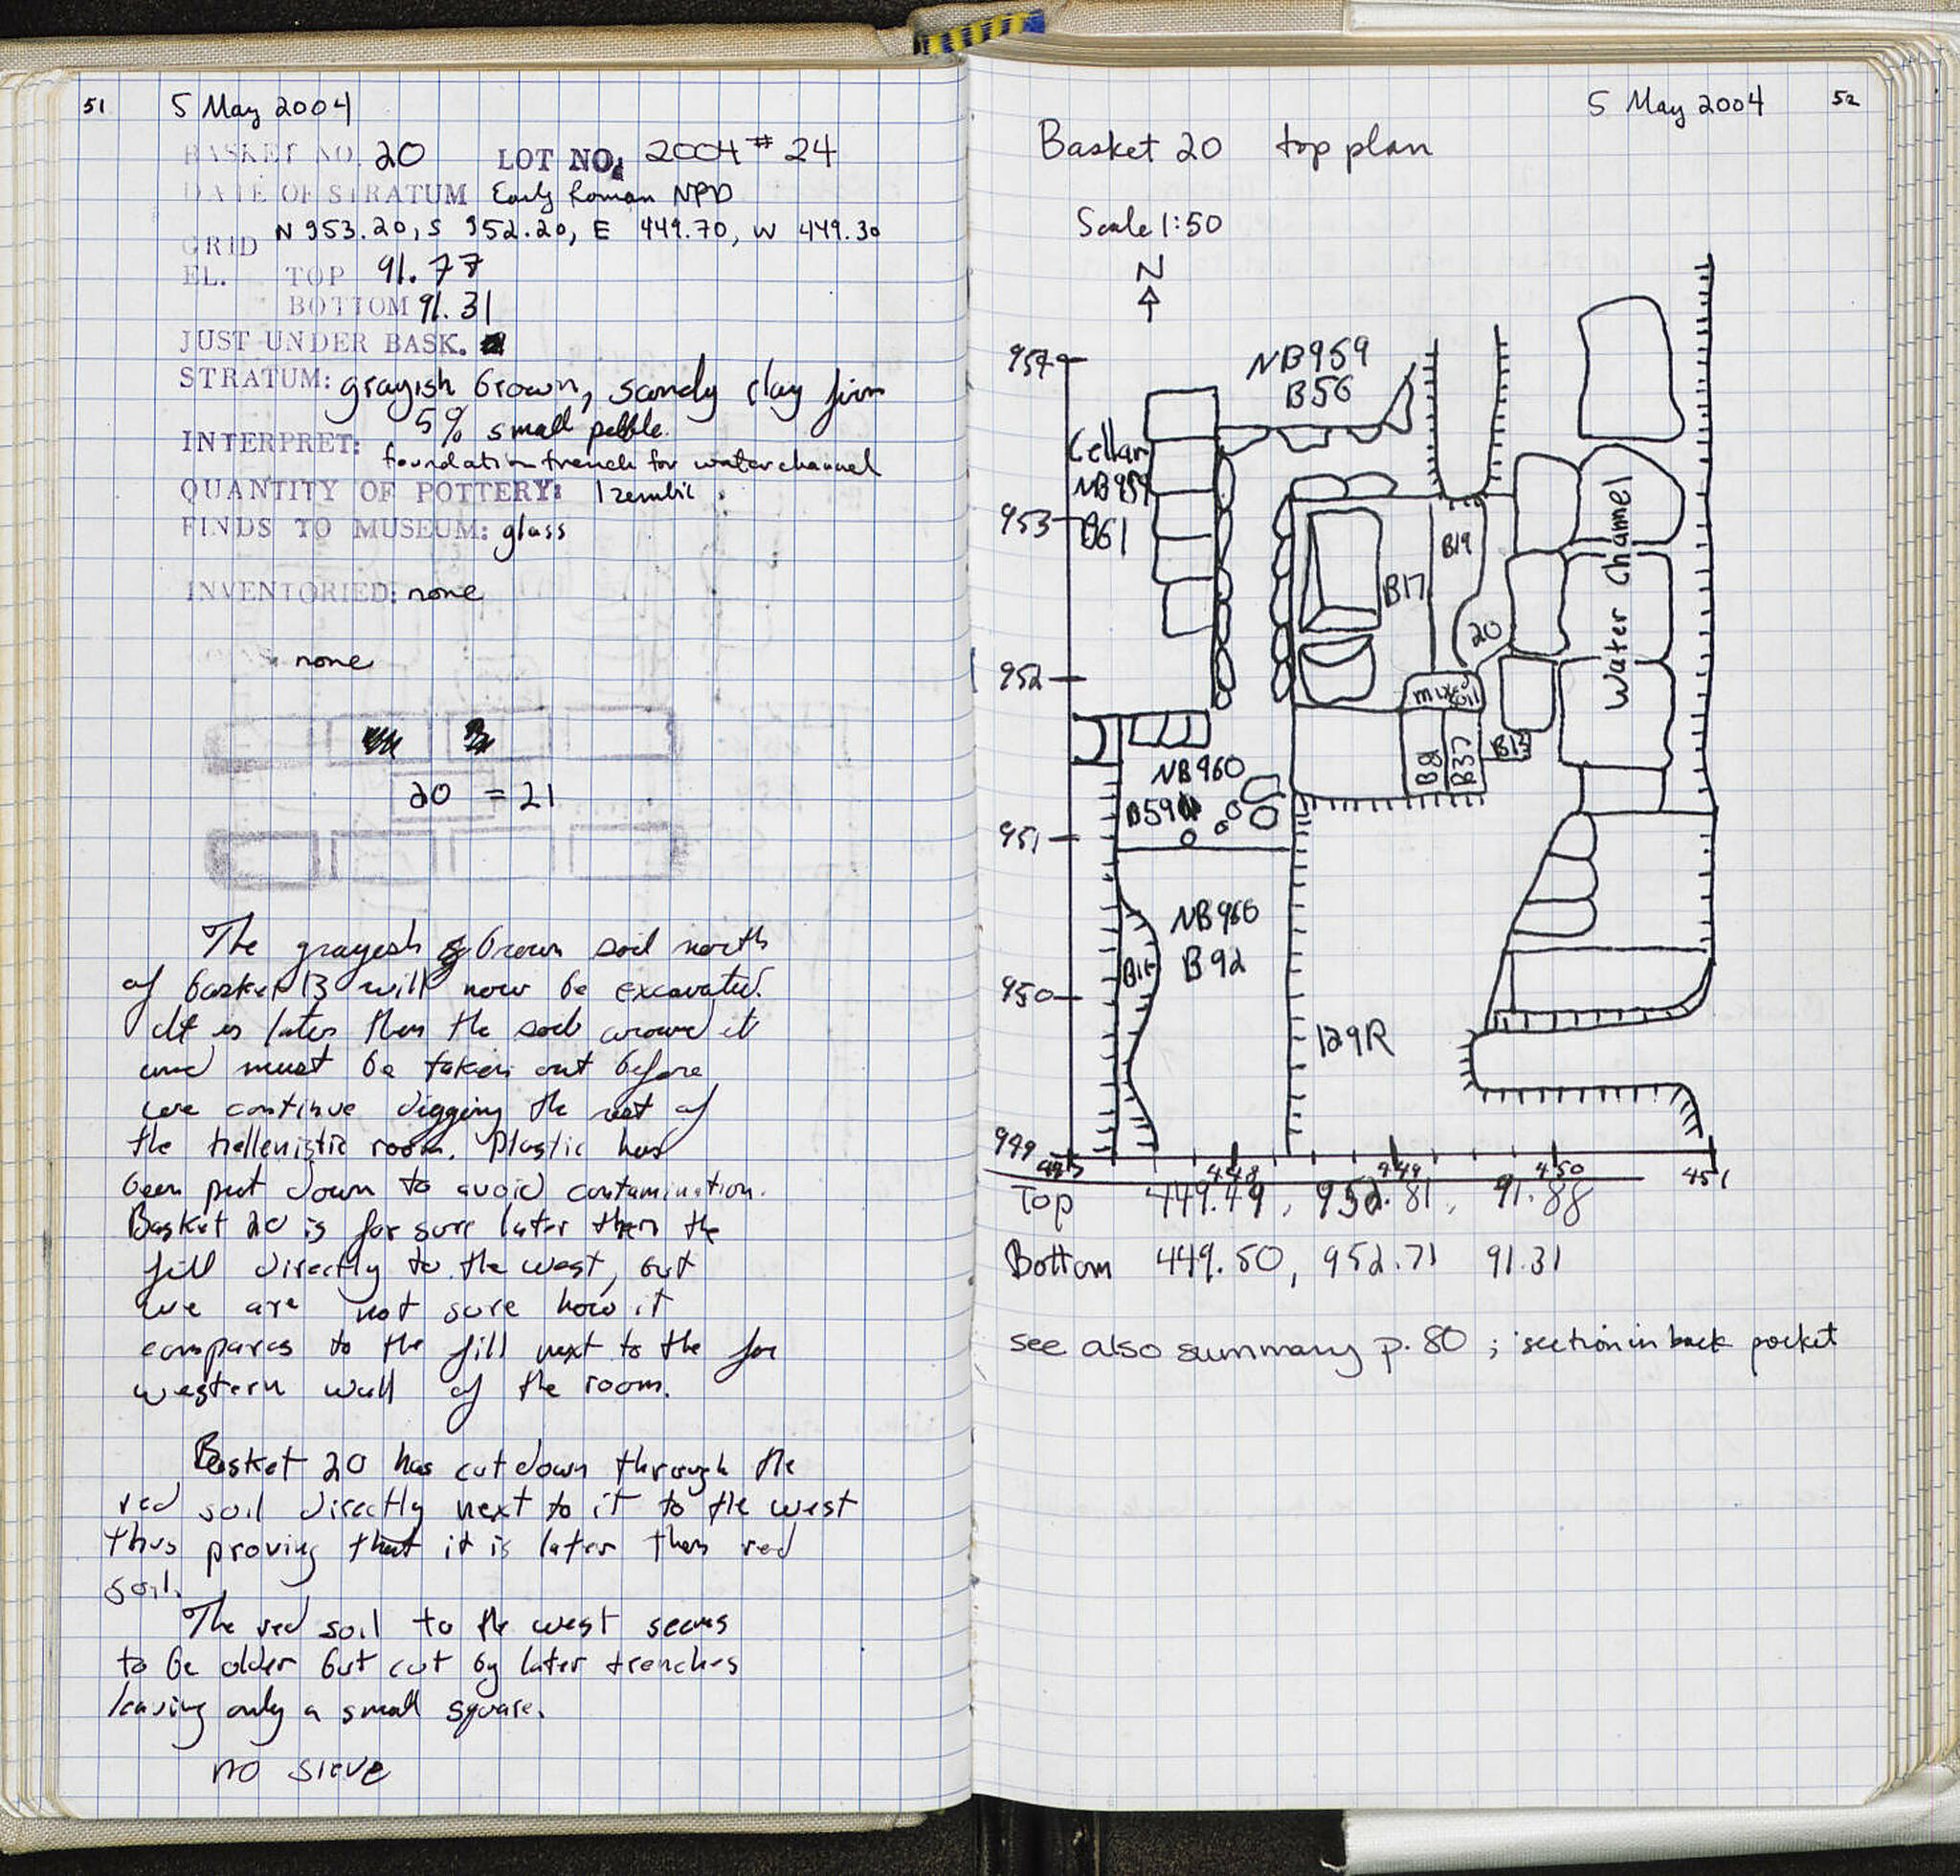 51 5 May 2004
BASKET NO. 20 LOT NO: 2004 # 24
DATE OF STRATUM Early Roman NPD
GRID N 953.20, S 952.20, E 449.70, W 449.30
EL. TOP 91.77
BOTTOM 91.31
JUST UNDER BASK.
STRATUM: grayish brown, sandy clay firm
5% small pebble
INTERPRET: foundation trench for water channel
QUANTITY OF POTTERY: 1 zembil.
FINDS TO MUSEUM: glass
INVENTORIED: none
COINS: none
20 = 21
The grayesh brown soil north
of basket 13 will now be excavated.
It is later then the soil around it
and must be taken out before
we continue digging the rest of
the hellenistic room. Plastic has
been put down to avoid contamination.
Basket 20 is for sure later then the
fill directly to the west, but
we are not sure how it
compares to the fill next to the far
western wall of the room.
Basket 20 has cut down through the
red soil directly next to it to the west
thus proving that it is later then red
soil.
The red soil to the west seems
to be older but cut by later trenches
leaving only a small square.
no sieve
5 May 2004 52
Basket 20 top plan
Scale 1:50
N
954
NB959
B56
Cellar
NB959
B61
953
B19
B17
20
Water Channel
952
mixed soil
B81
B37
B13
NB960
B59
951
NB966
B92
950
129R
949
448
449
450
451
Top 449.49, 952.81, 91.88
Bottom 449.50, 952.71 91.31
see also summary p. 80 ; section in back pocket